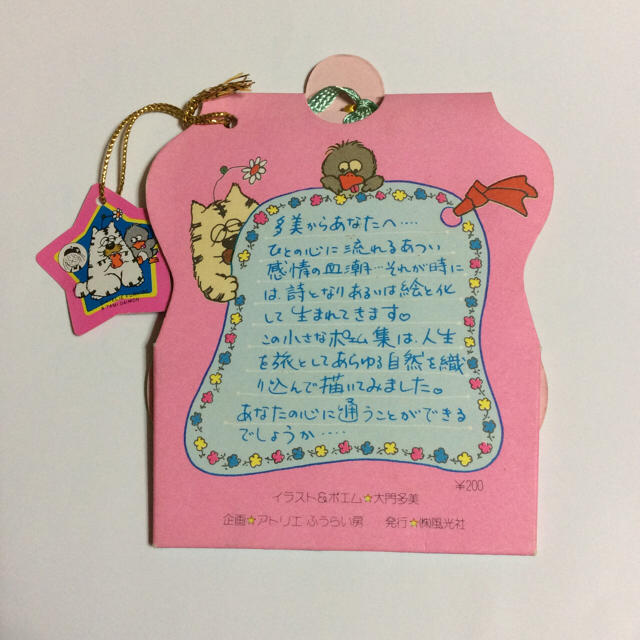 多美からあなたへ‥‥
ひとの心に流れるあつい
感情の血潮…それが時に
は詩となりあるいは絵と化
して生まれてきます。
この小さなポエム集は、人生
を旅としてあらゆる自然を織
り込んで描いてみました。
あなたの心に通うことができる
でしょうか‥‥
¥200
イラスト&ポエム☆大門多美
企画☆アトリエ ふうらい房 発行☆㈱風光社
& TAMI DAIMON